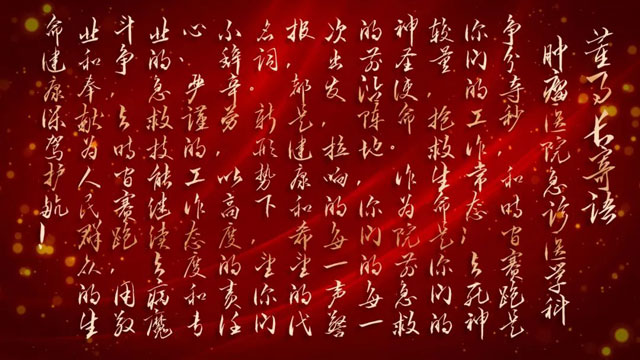 董事长寄语
肿瘤医院急诊医学科
争分夺秒,和时间赛跑是
你们的工作常态;与死神
较量,抢救生命是你们的
神圣使命。作为院前急救
的前沿阵地,你们的每一
次出发,拉响的每一声警
报,都是健康和希望的代
名词。新形势下,望你们
不辞辛劳,以高度的责任
心、严谨的工作态度和专
业的急救技能继续与病魔
斗争,与时间赛跑,用敬
业和奉献为人民群众的生
命健康保驾护航!